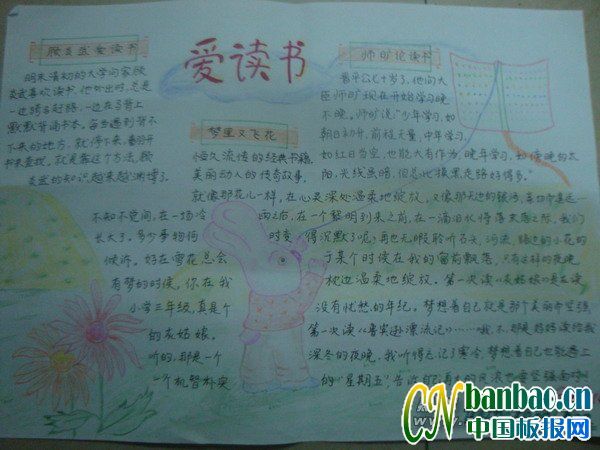 爱读书
顾炎武爱读书
明末清初的大学问家顾
炎武喜欢读书,他外出时,总是
一边骑马赶路,一边在马背上
默默背诵书本。每当遇到背不
下来的地方,就停下来,翻开
书来查找,就是靠这个方法,顾
炎武的知识越来越渊博了。
师旷论读书
晋平公七十岁了,他问大
臣师旷现在开始学习晚
不晚,师旷说"少年学习,如
朝日初升,前程大量,中年学习,
如红日当空,也能大有作为,晚年学习,如傍晚的太
阳,光线虽暗,但总比摸黑走路好得多。"
梦里又飞花
恒久流传的经典书籍
美丽动人的传奇故事,
就像那花儿一样,在心灵深处温柔地绽放,又像那天边的银河,
不知不觉间,在一场冷雨之后,在一个黎明到来之前,在一滴泪水将落未落之际,我们
长大了。多少事物何时变得沉默了呢,再也无暇聆听
候许。好在雪花总会于某个时候在我的窗前飘落,只有这样的夜晚
有梦的时候,你在我枕边温柔地绽放。第一次读《灰姑娘》是在读
小学三年级,真是个没有忧愁的年纪。梦想着自己就是那个美丽
的灰姑娘。第一次读《鲁宾逊漂流记》……
听的,那是一个深冬的夜晚,我听得忘记了寒冷,梦想着自己也能遇上
一个机智朴实的"星期五",
banbao.cn
中国板报网